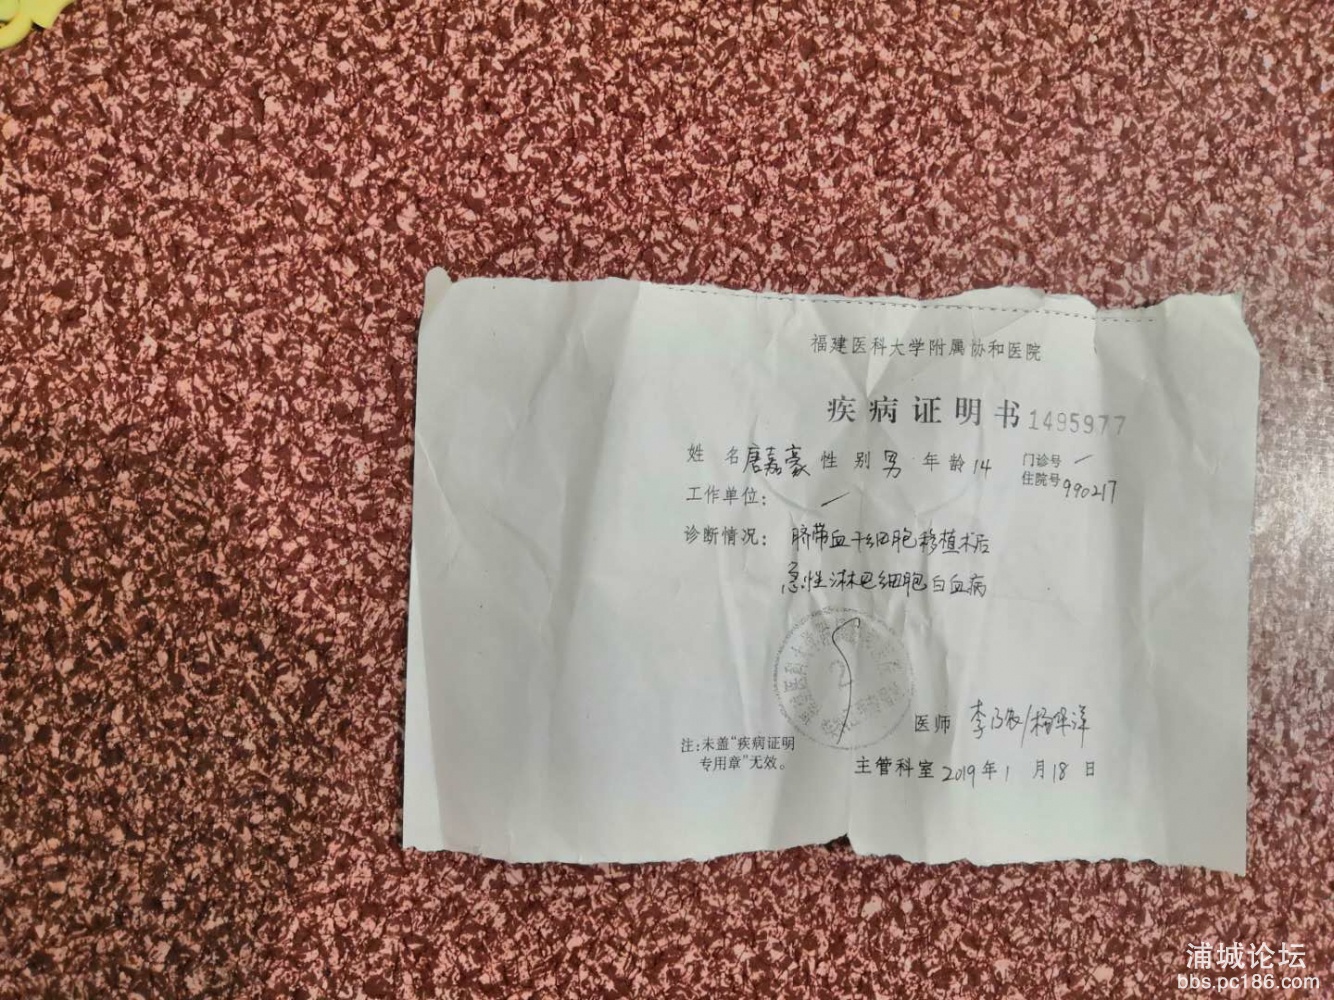 福建医科大学附属协和医院
疾病证明书 1495977
姓 名 唐嘉豪 性 别 男 年 龄 14 门诊号 /
住院号 990217
工作单位： /
诊断情况： 脐带血干细胞移植术后
急性淋巴细胞白血病
医师 李乃农/杨华洋
注：未盖“疾病证明
专用章”无效。
主管科室 2019 年 1 月 18 日
浦城论坛
bbs.pc186.com